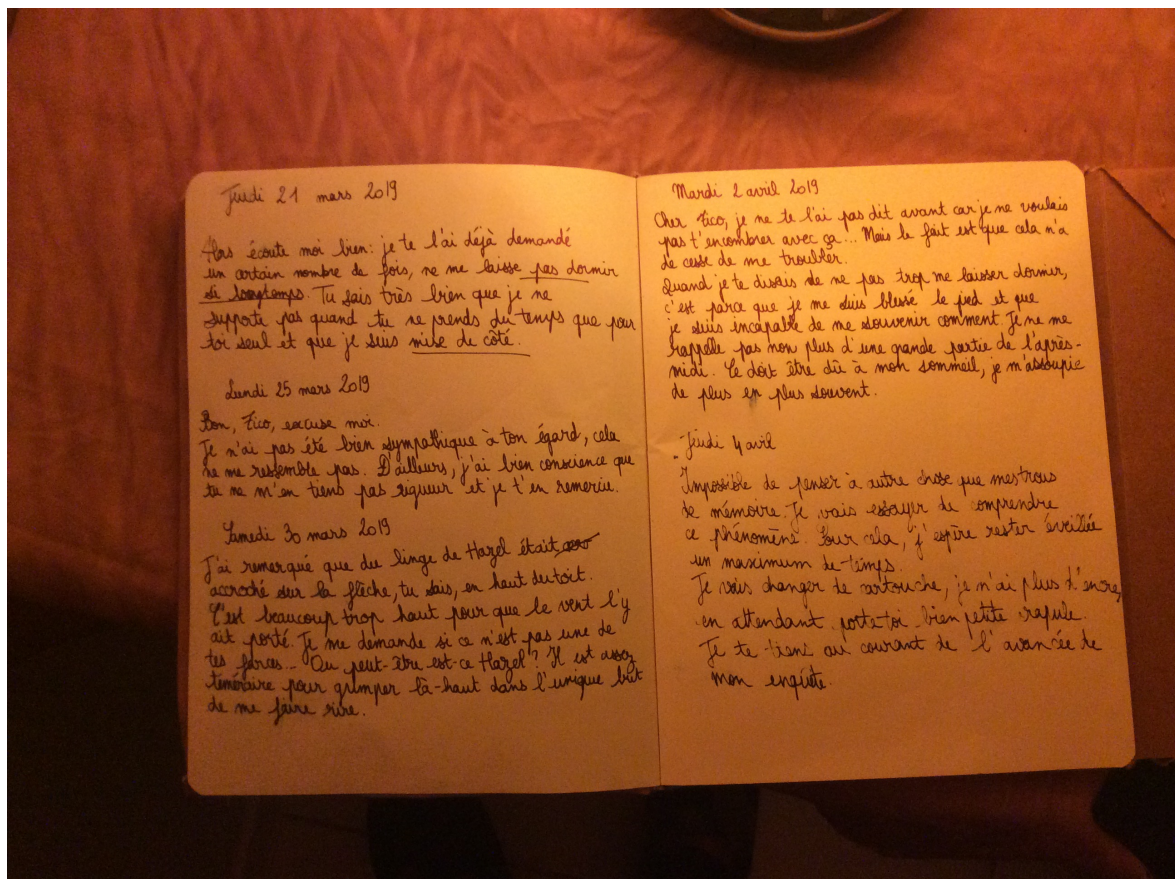 Jeudi 21 mars 2019
Alors écoute moi bien: je te l'ai déjà demandé
un certain nombre de fois, ne me laisse pas dormir
si longtemps. Tu sais très bien que je ne
supporte pas quand tu ne prends du temps que pour
toi seul et que je suis mise de côté.
Lundi 25 mars 2019
Bon, Zico, excuse moi.
Je n'ai pas été bien sympathique à ton égard, cela
ne me ressemble pas. D'ailleurs, j'ai bien conscience que
tu ne m'en tiens pas rigueur et je t'en remercie.
Samedi 30 mars 2019
J'ai remarqué que du linge de Hazel était
accroché sur la flèche, tu sais, en haut du toit.
C'est beaucoup trop haut pour que le vent l'y
ait porté. Je me demande si ce n'est pas une de
tes farces... Ou peut-être est-ce Hazel? Il est assez
téméraire pour grimper là-haut dans l'unique but
de me faire rire.
Mardi 2 avril 2019
Cher Zico, je ne te l'ai pas dit avant car je ne voulais
pas t'encombrer avec ça... Mais le fait est que cela n'a
de cesse de me troubler.
Quand je te disais de ne pas trop me laisser dormir,
c'est parce que je me suis blessé le pied et que
je suis incapable de me souvenir comment. Je ne me
rappelle pas non plus d'une grande partie de l'après-
midi. Ce doit être dû à mon sommeil, je m'assoupie
de plus en plus souvent.
Jeudi 4 avril
Impossible de penser à autre chose que mes trous
de mémoire. Je vais essayer de comprendre
ce phénomène. Pour cela, j'espère rester éveillée
un maximum de temps.
Je vais changer de cartouche, je n'ai plus d'encre,
en attendant porte toi bien petite crapule.
Je te tiens au courant de l'avancée de
mon enquête.